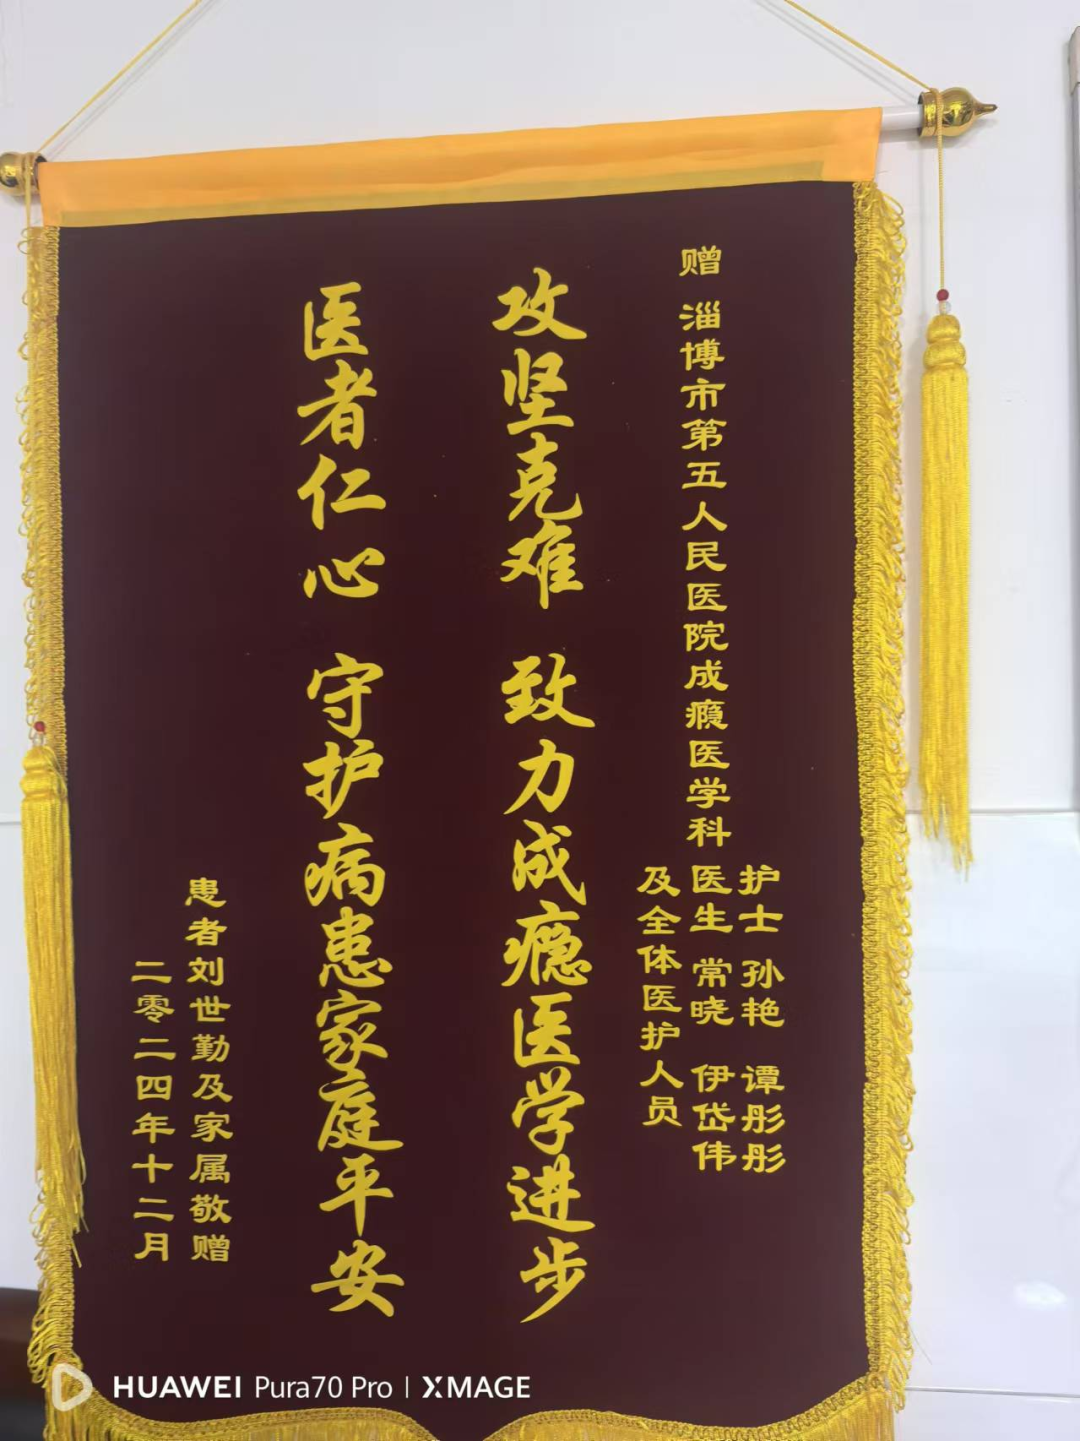 赠 淄博市第五人民医院成瘾医学科
护士 孙艳 谭彤彤
医生 常晓 伊岱伟
及全体医护人员
攻坚克难 致力成瘾医学进步
医者仁心 守护病患家庭平安
患者刘世勤及家属敬赠
二零二四年十二月
HUAWEI Pura70 Pro | XMAGE